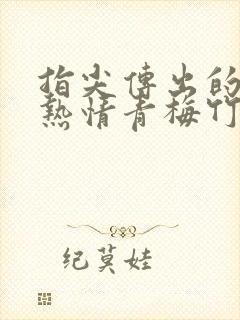 指尖傳出的
熱情青梅竹
纪莫娃